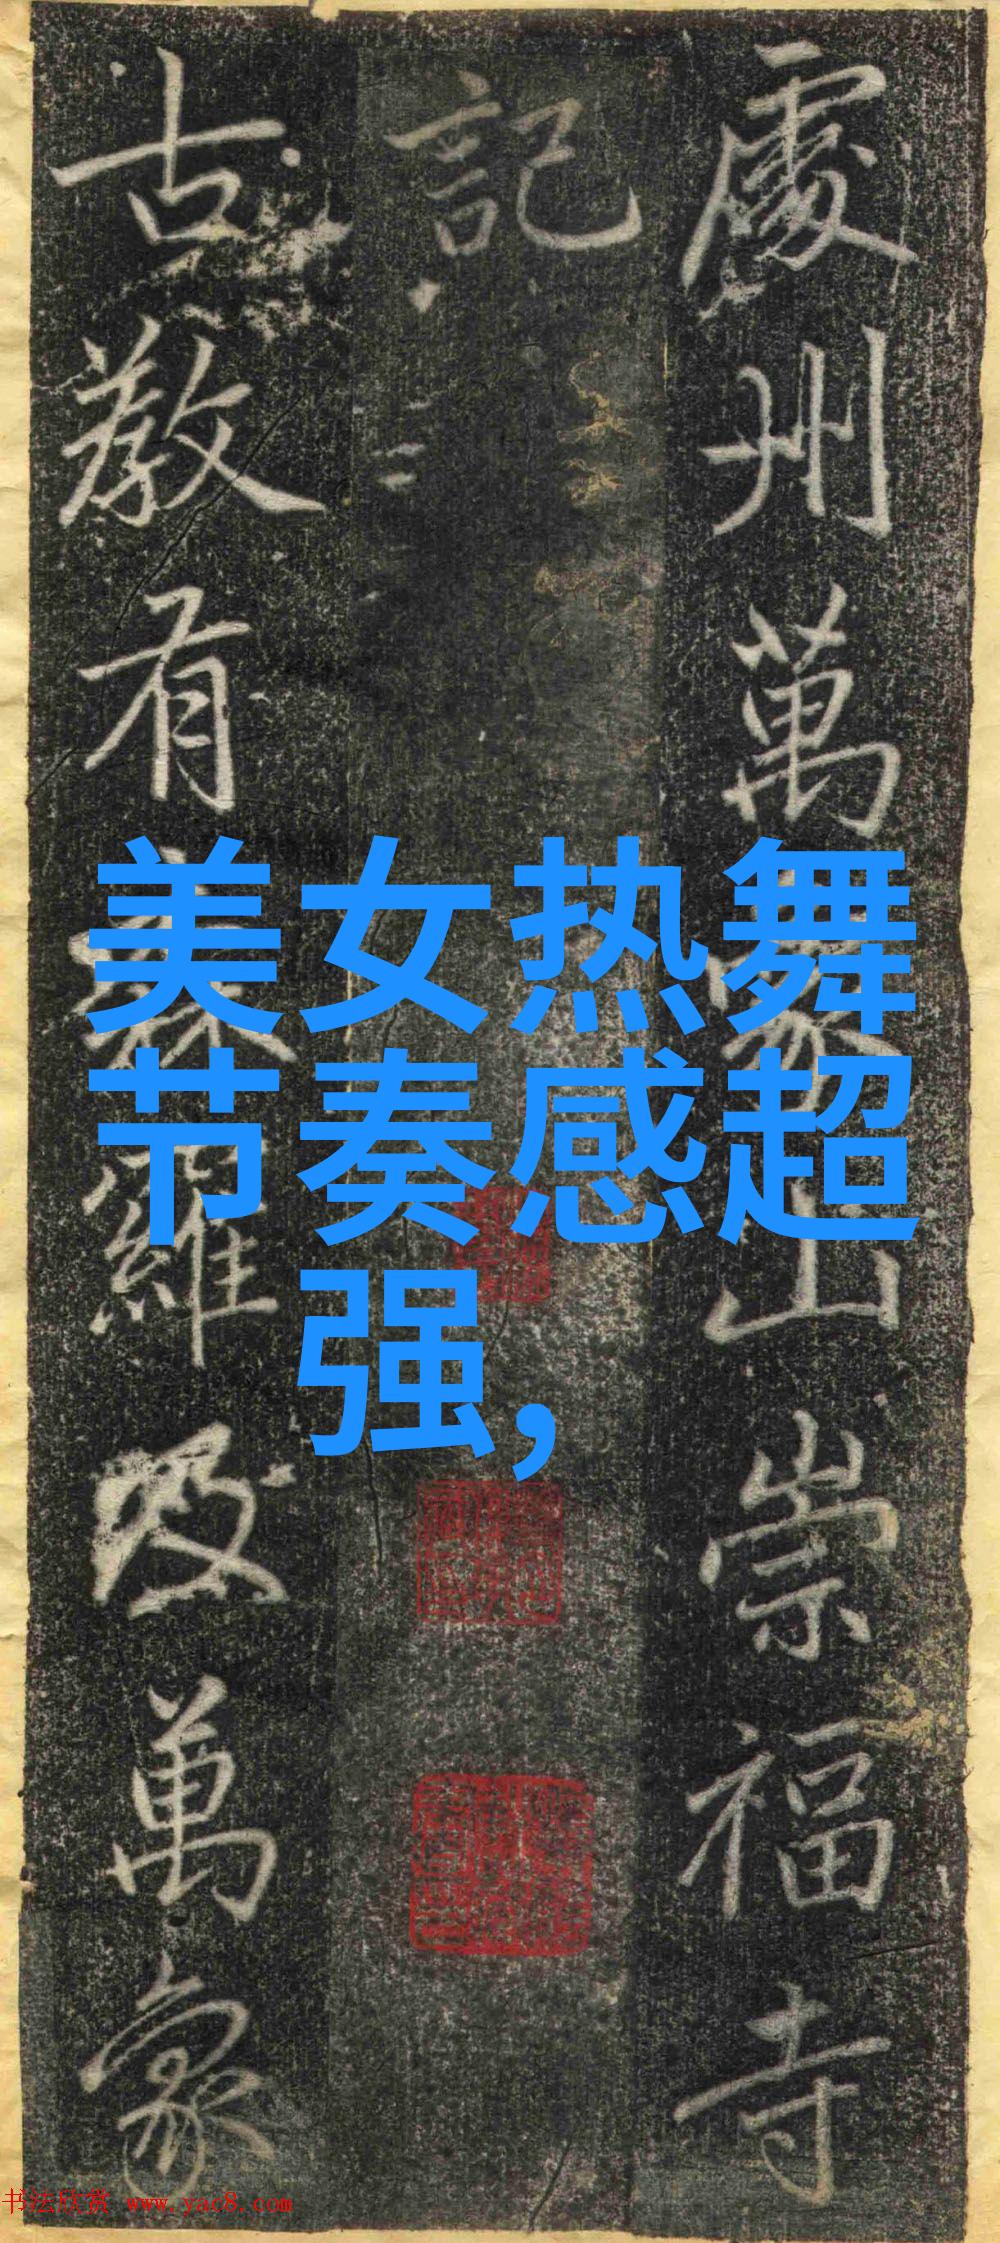 處州萬象山崇福寺
記
古教有森羅及萬象
美女热舞
节奏感超
强，
书法欣赏 www.yac8.com